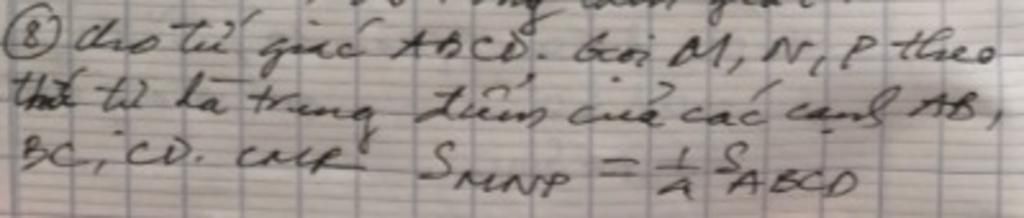 ⑧ cho tứ giác ABCD. Gọi M, N, P theo
thứ tự là trung điểm của các cạnh AB,
BC, CD. CMR S MNP = 1/4 S ABCD